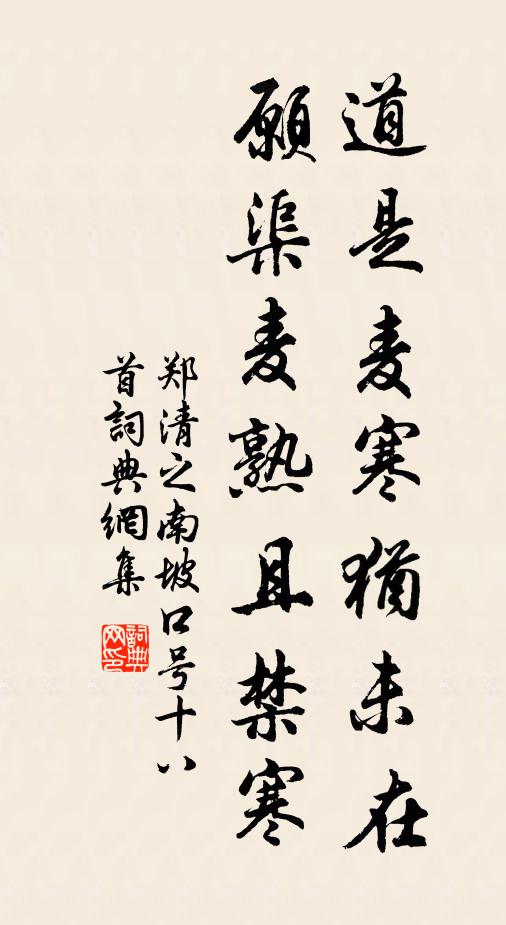 道是麦寒犹未在
愿渠麦熟且禁寒
郑清之南坡口号十八
首词典网集
詞典网印